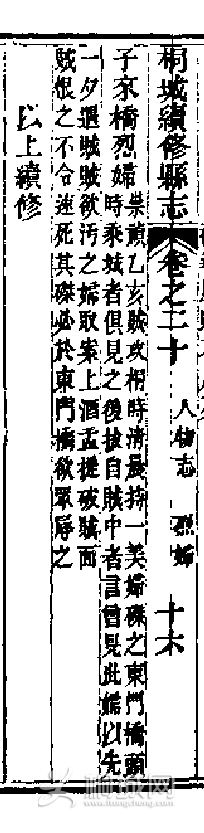 桐城續修縣志 卷之二十 人物志 烈婦 十六
子來橋烈婦 崇禎乙亥賊攻桐時清晨持一美婦磔之東門橋頭
時乘城者俱見之後拔自賊中者言曾見此婦以先
一夕遇賊賊欲污之婦取案上酒盂提破賊面
賊恨之不令速死其磔必於東門橋欲眾辱之
以上續修
桐城網
www.itongcheng.com